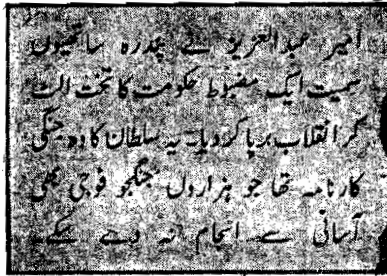 امیر عبدالعزیز نے پندرہ ساتھیوں
سمیت ایک مضبوط حکومت کا تخت الٹ
کر انقلاب برپا کر دیا۔ یہ سلطان کا وہ جنگی
کارنامہ تھا جو ہزاروں جنگجو فوجی بھی
آسانی سے انجام نہ دے سکے۔